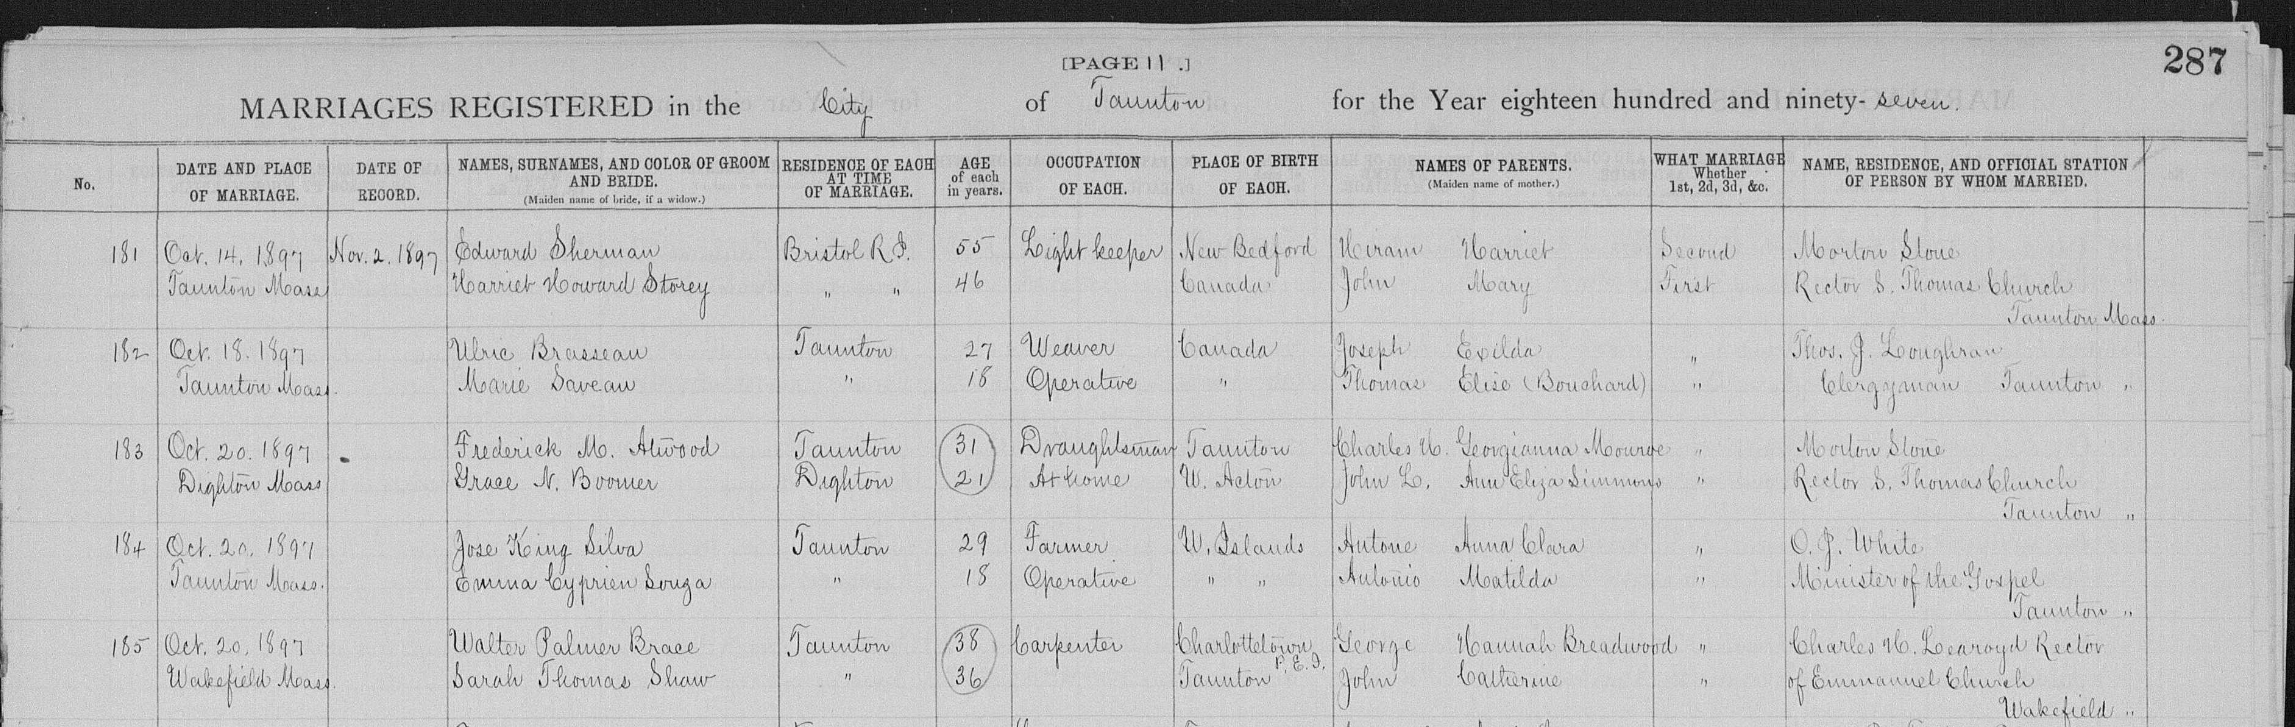 287
[PAGE 11.]
MARRIAGES REGISTERED in the City of Taunton for the Year eighteen hundred and ninety-seven.
No. DATE AND PLACE OF MARRIAGE. DATE OF RECORD. NAMES, SURNAMES, AND COLOR OF GROOM AND BRIDE. (Maiden name of bride, if a widow.) RESIDENCE OF EACH AT TIME OF MARRIAGE. AGE of each in years. OCCUPATION OF EACH. PLACE OF BIRTH OF EACH. NAMES OF PARENTS. (Maiden name of mother.) WHAT MARRIAGE Whether 1st, 2d, 3d, &c. NAME, RESIDENCE, AND OFFICIAL STATION OF PERSON BY WHOM MARRIED.
181 Oct. 14, 1897 Nov. 2. 1897 Edward Sherman Bristol R.I. 55 Light keeper New Bedford Hiram Harriet Second Morton Stone
Taunton Mass Harriet Howard Storey " " 46 Canada John Mary First Rector S. Thomas Church
Taunton Mass.
182 Oct. 18. 1897 Ulric Brasseau Taunton 27 Weaver Canada Joseph Exilda " Thos. J. Loughran
Taunton Mass. Marie Saveau " 18 Operative " Thomas Elise (Bouchard) " Clergyman Taunton "
183 Oct. 20. 1897 Frederick M. Atwood Taunton 31 Draughtsman Taunton Charles H. Georgianna Monroe " Morton Stone
Dighton Mass Grace N. Boomer Dighton 21 At home W. Acton John L. Ann Eliza Simmons " Rector S. Thomas Church
Taunton "
184 Oct. 20, 1897 Jose King Silva Taunton 29 Farmer W. Islands Antone Anna Clara " O. J. White
Taunton Mass. Emma Cyprien Souza " 18 Operative " " Antonio Matilda " Minister of the Gospel
Taunton "
185 Oct. 20, 1897 Walter Palmer Brace Taunton 38 Carpenter Charlottetown P.E.I. George Hannah Breadwood " Charles H. Learoyd Rector
Wakefield Mass. Sarah Thomas Shaw " 36 Taunton John Catherine " of Emmanuel Church
Wakefield "